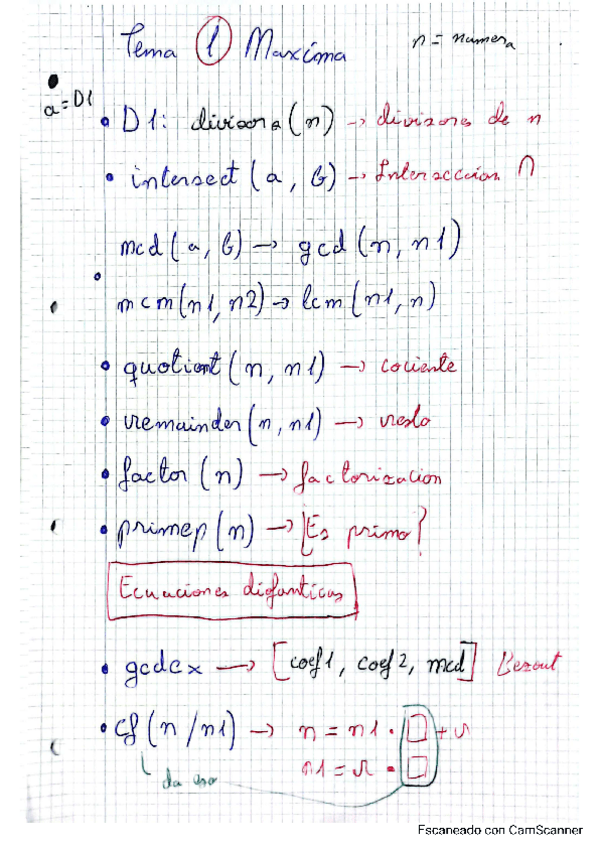 Tema 1 Maxima
n = numero
a = D1
• D1: divisors(n) → divisores de n
• intersect(a, b) → Interseccion ∩
mcd(a, b) → gcd(n, n1)
• mcm(n1, n2) → lcm(n1, n)
• quotient(n, n1) → cociente
• remainder(n, n1) → resto
• factor(n) → factorizacion
• primep(n) → ¿Es primo?
Ecuaciones diofanticas
• gcdex → [coef1, coef2, mcd] Bezout
• cf(n/n1) → n = n1 · □ + r
n1 = r · □
da eso
Escaneado con CamScanner